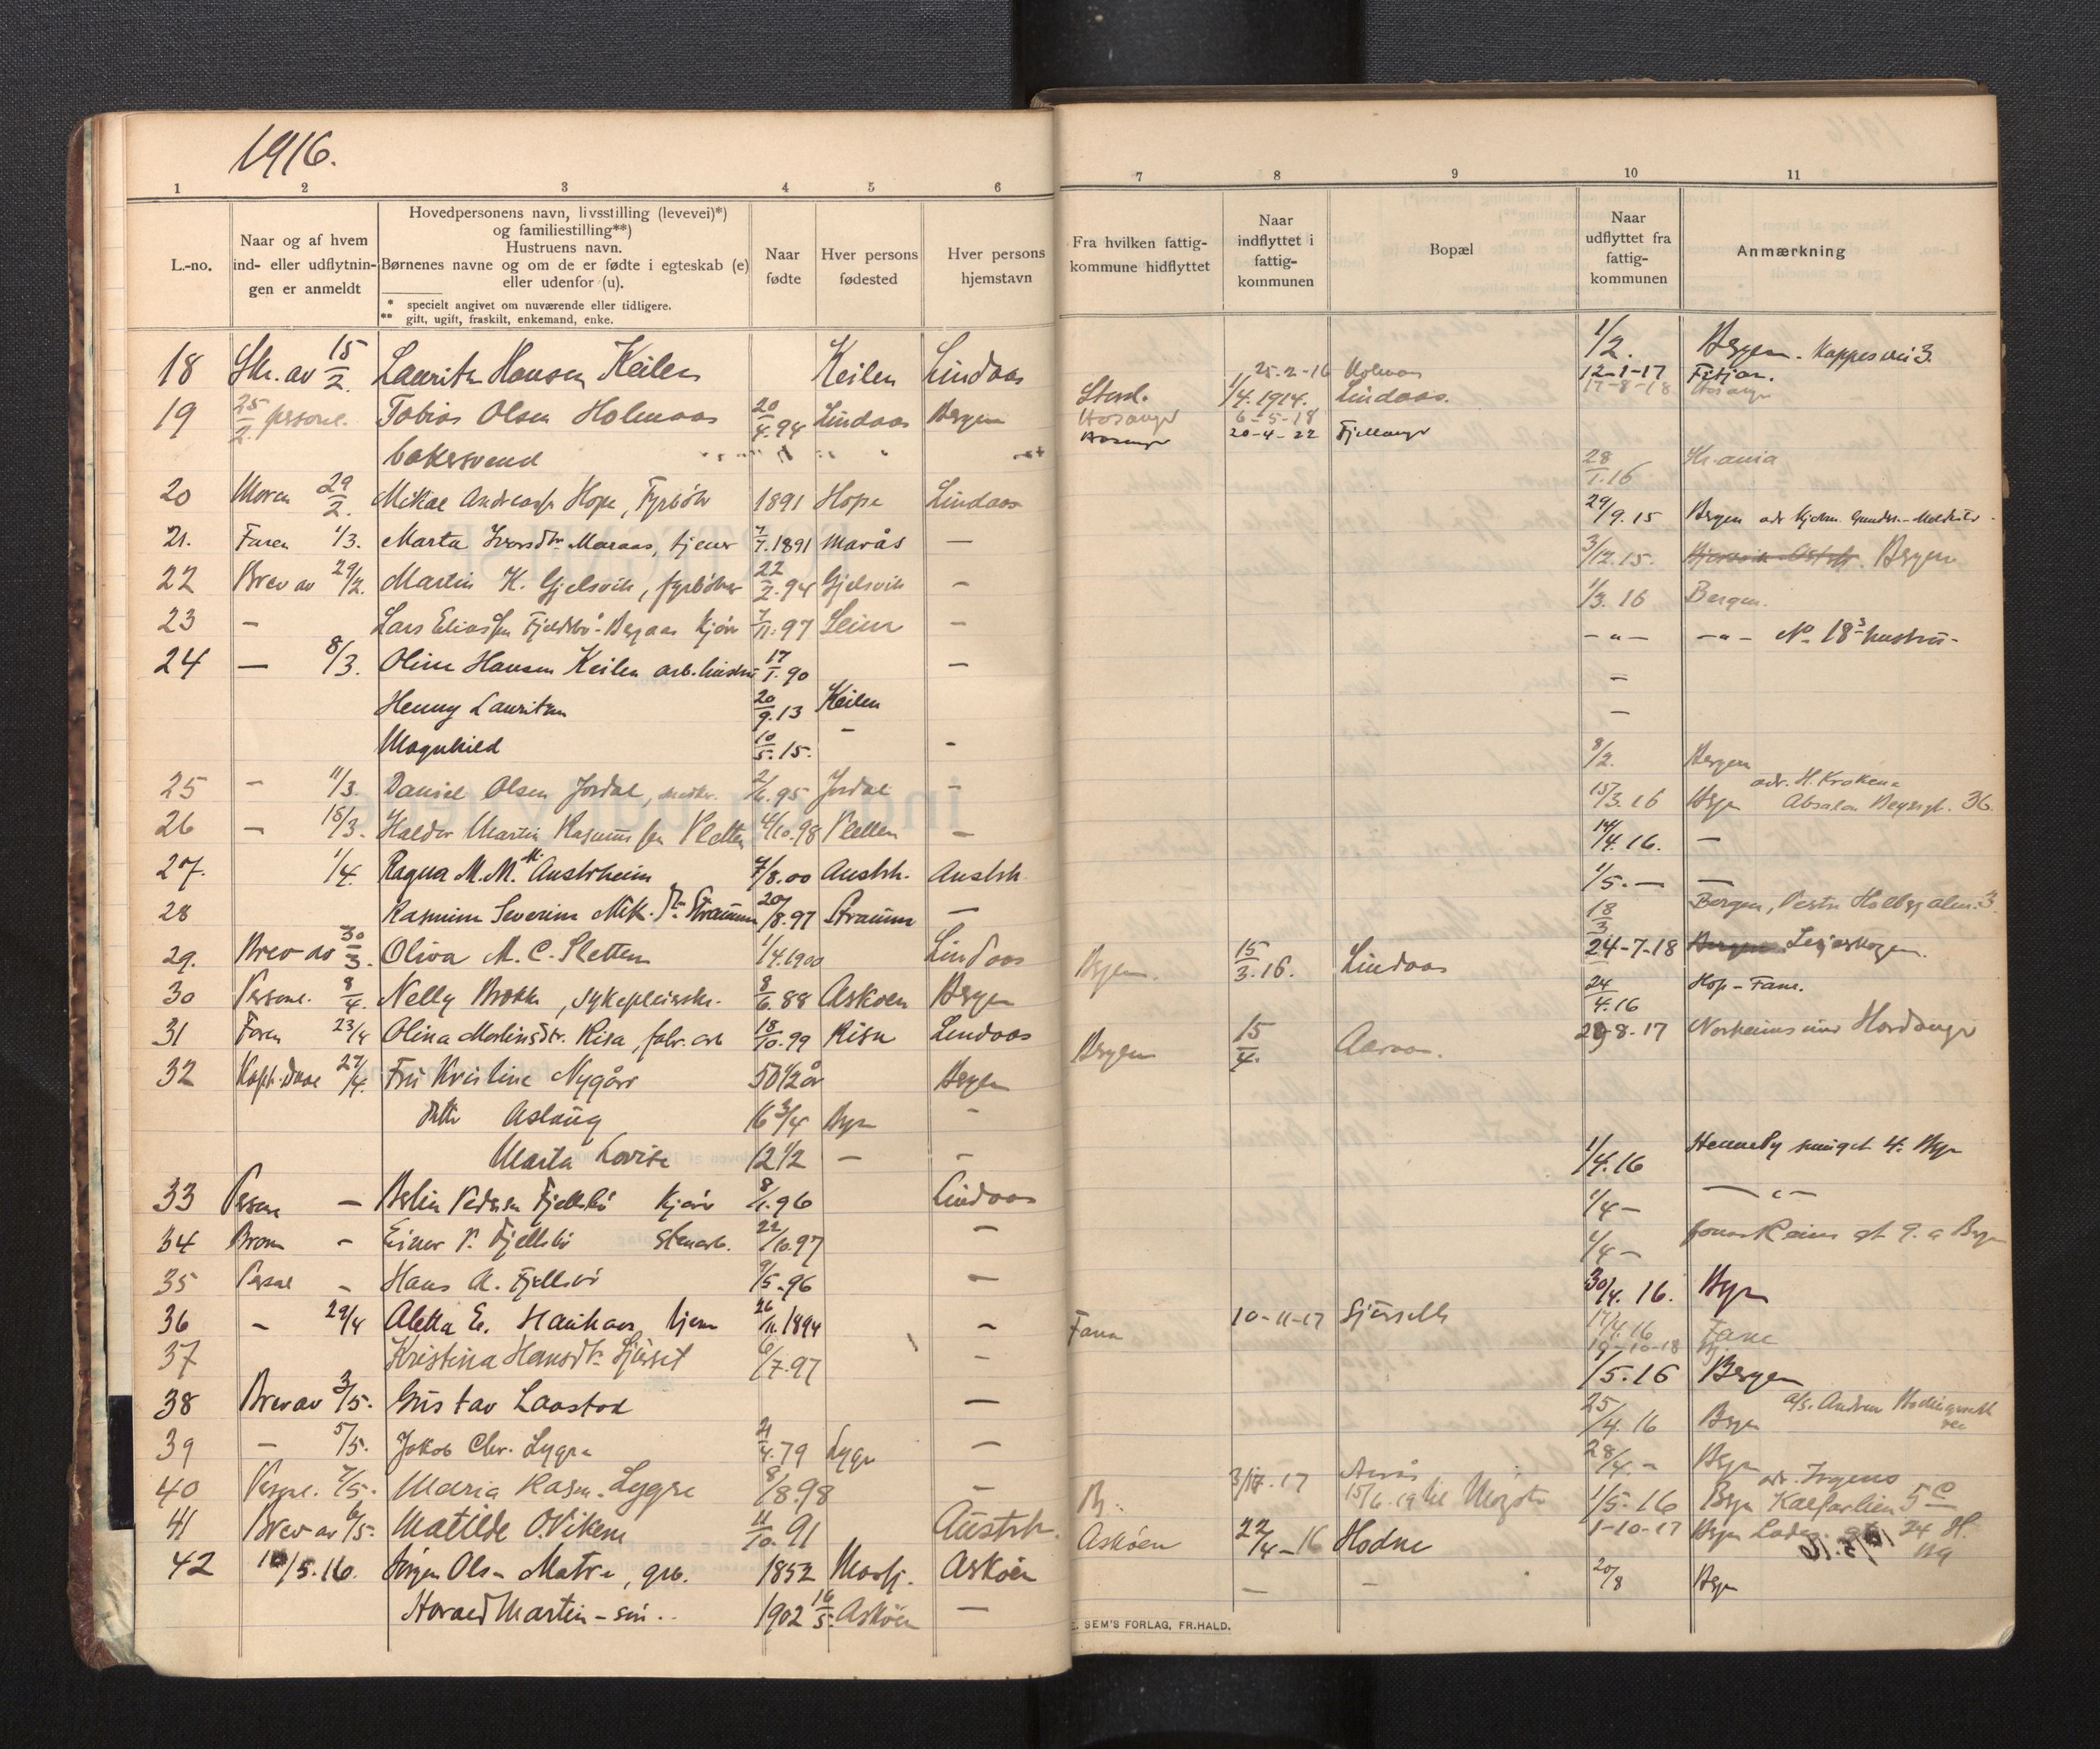 1916.
1 2 3 4 5 6
L.-no.
Naar og af hvem
ind- eller udflytnin-
gen er anmeldt
Hovedpersonens navn, livsstilling (levevei)*)
og familiestilling**)
Hustruens navn.
Børnenes navne og om de er fødte i egteskab (e)
eller udenfor (u).
* specielt angivet om nuværende eller tidligere.
** gift, ugift, fraskilt, enkemand, enke.
Naar
fødte
Hver persons
fødested
Hver persons
hjemstavn
18 Skr. av 15/2 Lauritz Hansen Keilen Keilen Lindaas
19 25/2 personl. Tobias Olsen Holmaas 20/4.94 Lindaas Bergen
bakersvend
20 Moren 29/2. Mikal Andreass. Hope, Fyrbøter 1891 Hope Lindaas
21. Faren 1/3. Marta Iversdtr. Maraas, tjener 7/7.1891 Marås —
22 Brev av 29/2. Martin K. Gjelsvik, fyrbøter 22/2.94 Gjelsvik —
23 — Lars Eliassen Fjeldsbø - kjør 7/11.97 Leim —
24 — 8/3. Oline Hansen Keilen arb. hustru 17/1.90 —
Henny Lauritzen 20/9.13 Keilen
Magnhild 10/5.15. — —
25 — 11/3. Daniel Olsen Jordal, 2/6.95 Jordal —
26 — 15/3. Haldor Martin Rasmussen Sletten 4/10.98 Sletten —
27. 1/4. Ragna M. M. Austrheim 7/8.00 Austrh. Austrh.
28 Rasmine Severine Mik. Dtr. Straume 20/8.97 Straume —
29. Brev av 30/3. Oliva M. C. Sletten 1/4.1900 Lindaas
30 Personl. 8/4. Nelly Brokke, sykepleierske. 8/6.88 Askøen Bergen
31 Faren 23/4 Olina Martinsdtr. Risa, fabr. arb 18/10.99 Risa Lindaas
32 Kapt. Daae 27/4. Fru Kristine Nygård 50 1/2 år Bergen
Dttr Aslaug 16 3/4 Bgn —
Marta Lovise 12 1/2 — —
33 Personl — Berlin Pedersen Fjellsbø kjør 8/1.96 Lindaas
34 Broren — Einar P. Fjellsbø Stenarb. 22/10.97 —
35 Personl — Hans A. Fjellsbø 9/5.96 —
36 — 29/4 Aletta E. Haukaas, tjener 26/11.1894 —
37 Kristina Hansdtr. Sjurset 6/7.97 —
38 Brev av 3/5. Gustav Laastad —
39 — 5/5. Jakob Chr. Lygre 21/4.79 Lygre —
40 Personl. 7/5. Maria Rasm. Lygre 8/8.98 —
41 Brev av 6/5. Matilde O. Vikene 11/10.91 Austrh.
42 10/5.16. Jørgen Olsen Matre, grb. 1852 Masfj. Askøen
Harald Martin - søn .. 1902 16/5. Askøen —
7 8 9 10 11
Fra hvilken fattig-
kommune hidflyttet
Naar
indflyttet i
fattig-
kommunen
Bopæl
Naar
udflyttet fra
fattig-
kommunen
Anmærkning
1/2. Bergen. Kappesvei 3.
25-2-16 Holmaas 12-1-17 Fitjar.
Stord. 1/4.1914. Lindaas. 17-8-18 Hosanger
Hosanger 6-5-18
Hosanger 20-4-22 Fjellanger
28/1.16 Kr.ania
29/9.15 Bergen adr
3/12.15. Bergen
1/3.16 Bergen.
— " — — " — No 18 hustru -
—
—
8/2. Bergen
adr. H. Krokene
15/3.16 Bgn Absalon Beyersgt. 36.
14/4.16. —
1/5. — —
18/3 Bergen, Vestre Holbergalm. 3.
Bgen. 15/3.16. Lindaas 24-7-18 Lesjaskogen.
24/4.16 Hop - Fane.
Bergen 15/4. Aaraas. 29-8-17 Norheimsund Hardanger
1/4.16 Henneby smuget 4. Bgn
1/4 — — " —
1/4 — Jonas Reins gt 9. a Bgn
30/4.16. Bgn
Fana 10-11-17 Sjurseth 17/4.16 Fane
19-10-18
1/5.16 Bergen
25/4.16 Bgen
28/4. — Bgn
adr. Irgens
B. 3/12.17 1/5.16 Bgn Kalfarlien 5 c
Askøen 22/4-16 Hodne 1-10-17 Bgn 24 II.
— — 20/8 Bgn
E. SEM'S FORLAG, FR.HALD.